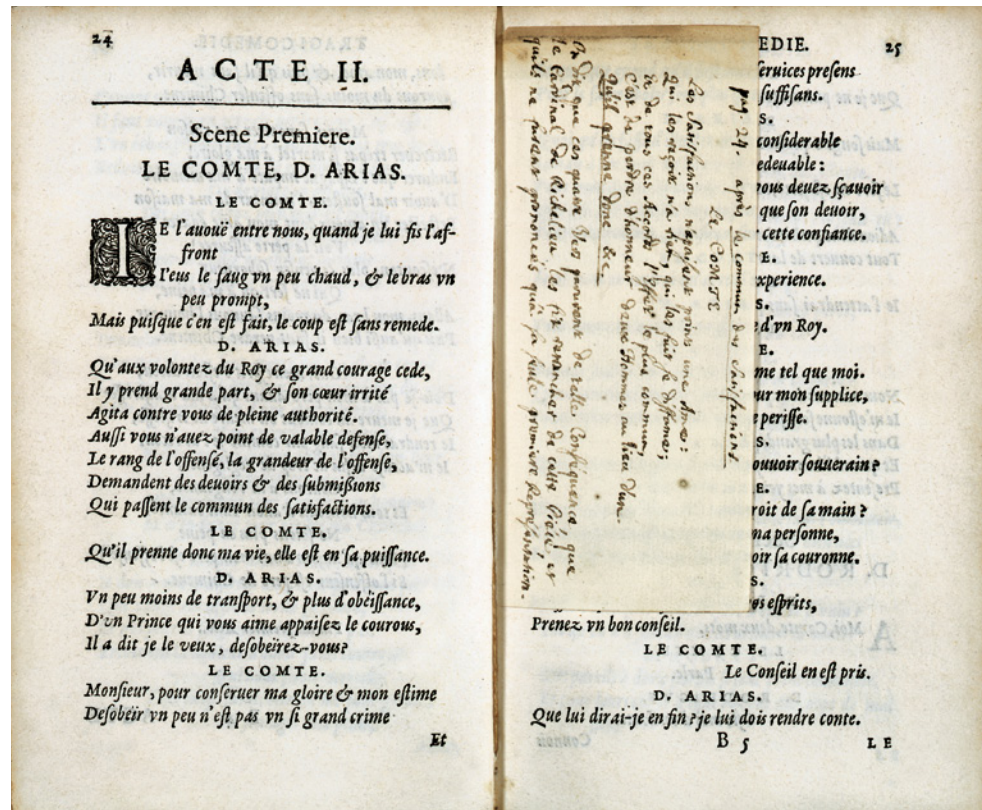 24
ACTE II.
Scene Premiere.
LE COMTE, D. ARIAS.
LE COMTE.
IE l'auouë entre nous, quand je lui fis l'af-
front
I'eus le saug vn peu chaud, & le bras vn
peu prompt,
Mais puisque c'en est fait, le coup est sans remede.
D. ARIAS.
Qu'aux volontez du Roy ce grand courage cede,
Il y prend grande part, & son cœur irrité
Agita contre vous de pleine authorité.
Aussi vous n'auez point de valable defense,
Le rang de l'offensé, la grandeur de l'offense,
Demandent des deuoirs & des submissions
Qui passent le commun des satisfactions.
LE COMTE.
Qu'il prenne donc ma vie, elle est en sa puissance.
D. ARIAS.
Vn peu moins de transport, & plus d'obéissance,
D'vn Prince qui vous aime appaisez le courous,
Il a dit je le veux, desobeïrez-vous?
LE COMTE.
Monsieur, pour conseruer ma gloire & mon estime
Desobeïr vn peu n'est pas vn si grand crime
Et
pag. 24. après le commun des satisfactions.
Le Comte
Les Satisfactions n'apaisent point une Ame:
Qui les reçoit n'a rien, qui les fait se diffame,
Et de tous ces Accords l'effet le plus commun,
C'est de perdre d'honneur deux Hommes au lieu d'un.
Qu'il prenne donc &c.
On dit que ces quatre Vers parurent de telle Conséquence, que
le Cardinal de Richelieu les fit retrancher de cette Pièce, et
qu'ils ne furent prononcés qu'à la seule première Représentation.
EDIE. 25
seruices presens
suffisans.
S.
considerable
edeuable:
vous deuez sçauoir
que son deuoir,
cette confiance.
E.
xperience.
S.
e d'vn Roy.
E.
me tel que moi.
ur mon supplice,
e perisse.
S.
ouuoir souuerain?
E.
roit de sa main?
ma personne,
oir sa couronne.
S.
es esprits,
Prenez vn bon conseil.
LE COMTE.
Le Conseil en est pris.
D. ARIAS.
Que lui dirai-je en fin? je lui dois rendre conte.
B 5 LE